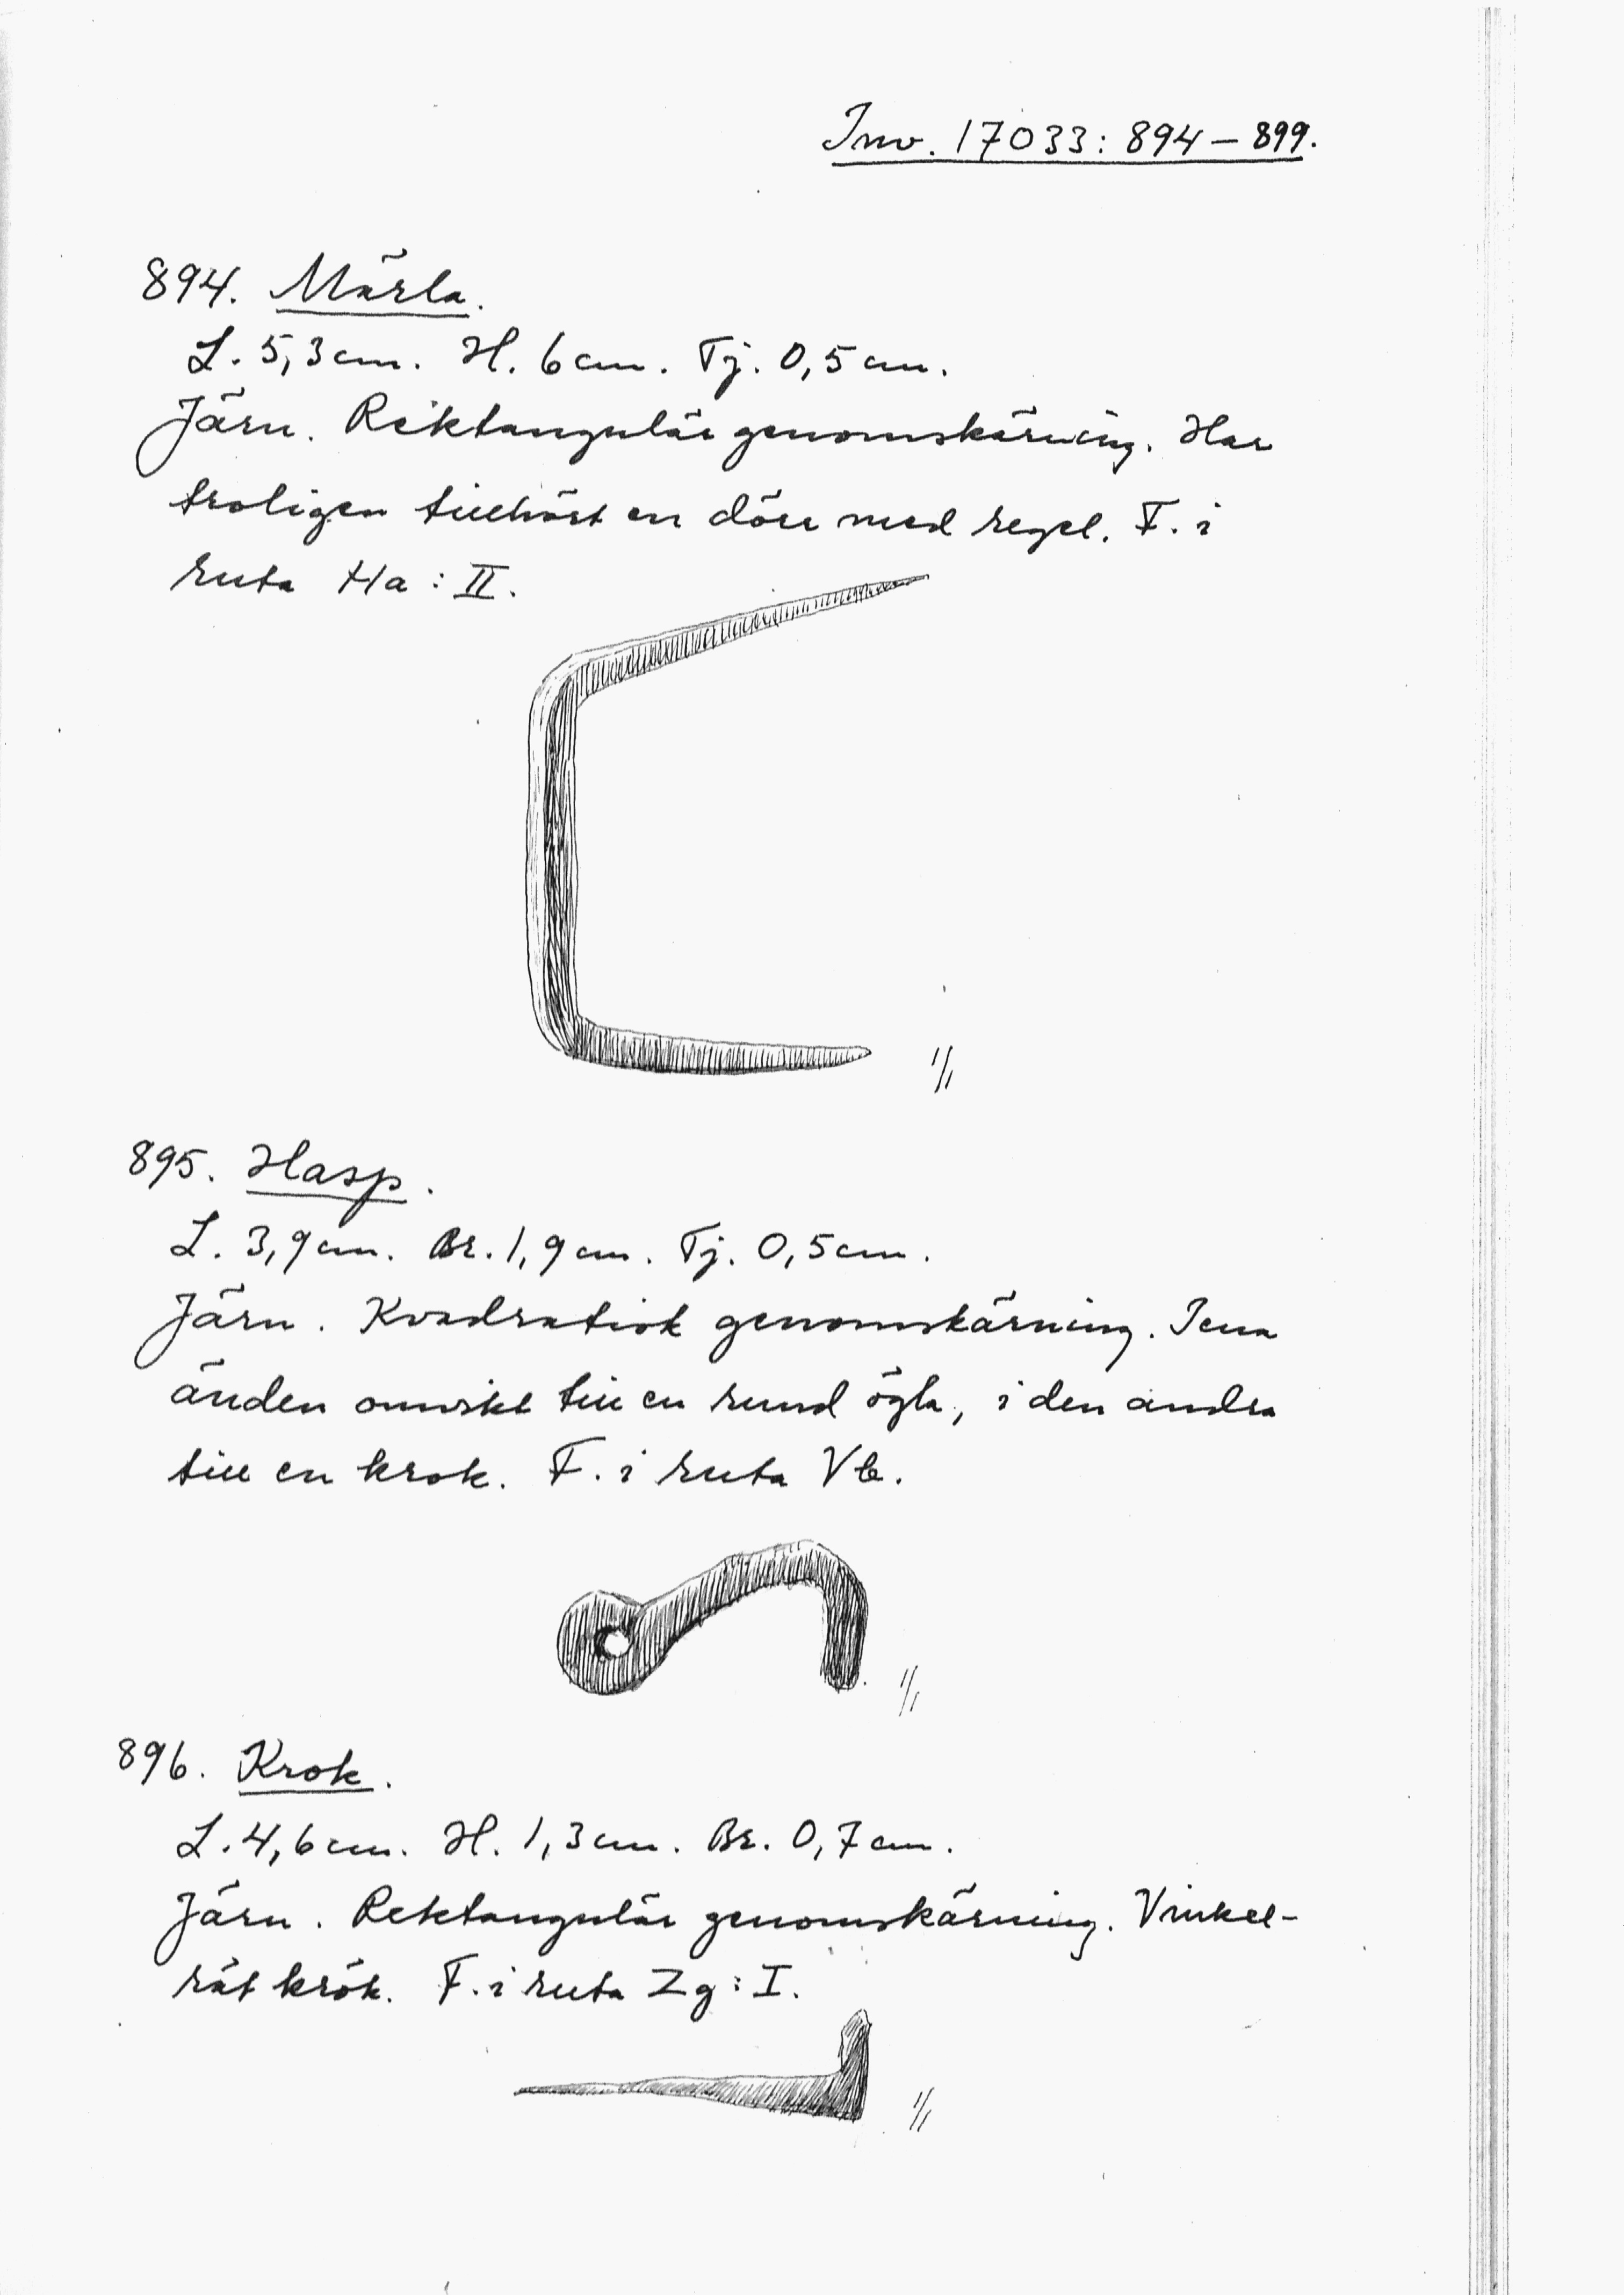 Inv. 17033: 894 – 899.
894. Märla.
L. 5,3 cm. H. 6 cm. Tj. 0,5 cm.
Järn. Rektangulär genomskärning. Har
troligen tillhört en dörr med regel. F. i
ruta Ha : II.
1/1
895. Hasp.
L. 3,9 cm. Br. 1,9 cm. Tj. 0,5 cm.
Järn. Kvadratisk genomskärning. I ena
änden omvikt till en rund ögla, i den andra
till en krok. F. i ruta Vb.
1/1
896. Krok.
L. 4,6 cm. H. 1,3 cm. Br. 0,7 cm.
Järn. Rektangulär genomskärning. Vinkel-
rät krök. F. i ruta Zg : I.
1/1